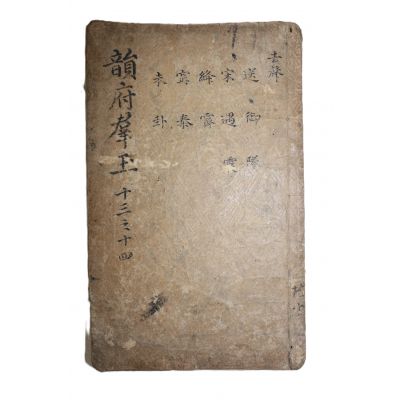 去聲
送御隊
宋遇
絳霽
寘泰
未卦
韻府羣玉十三之十四